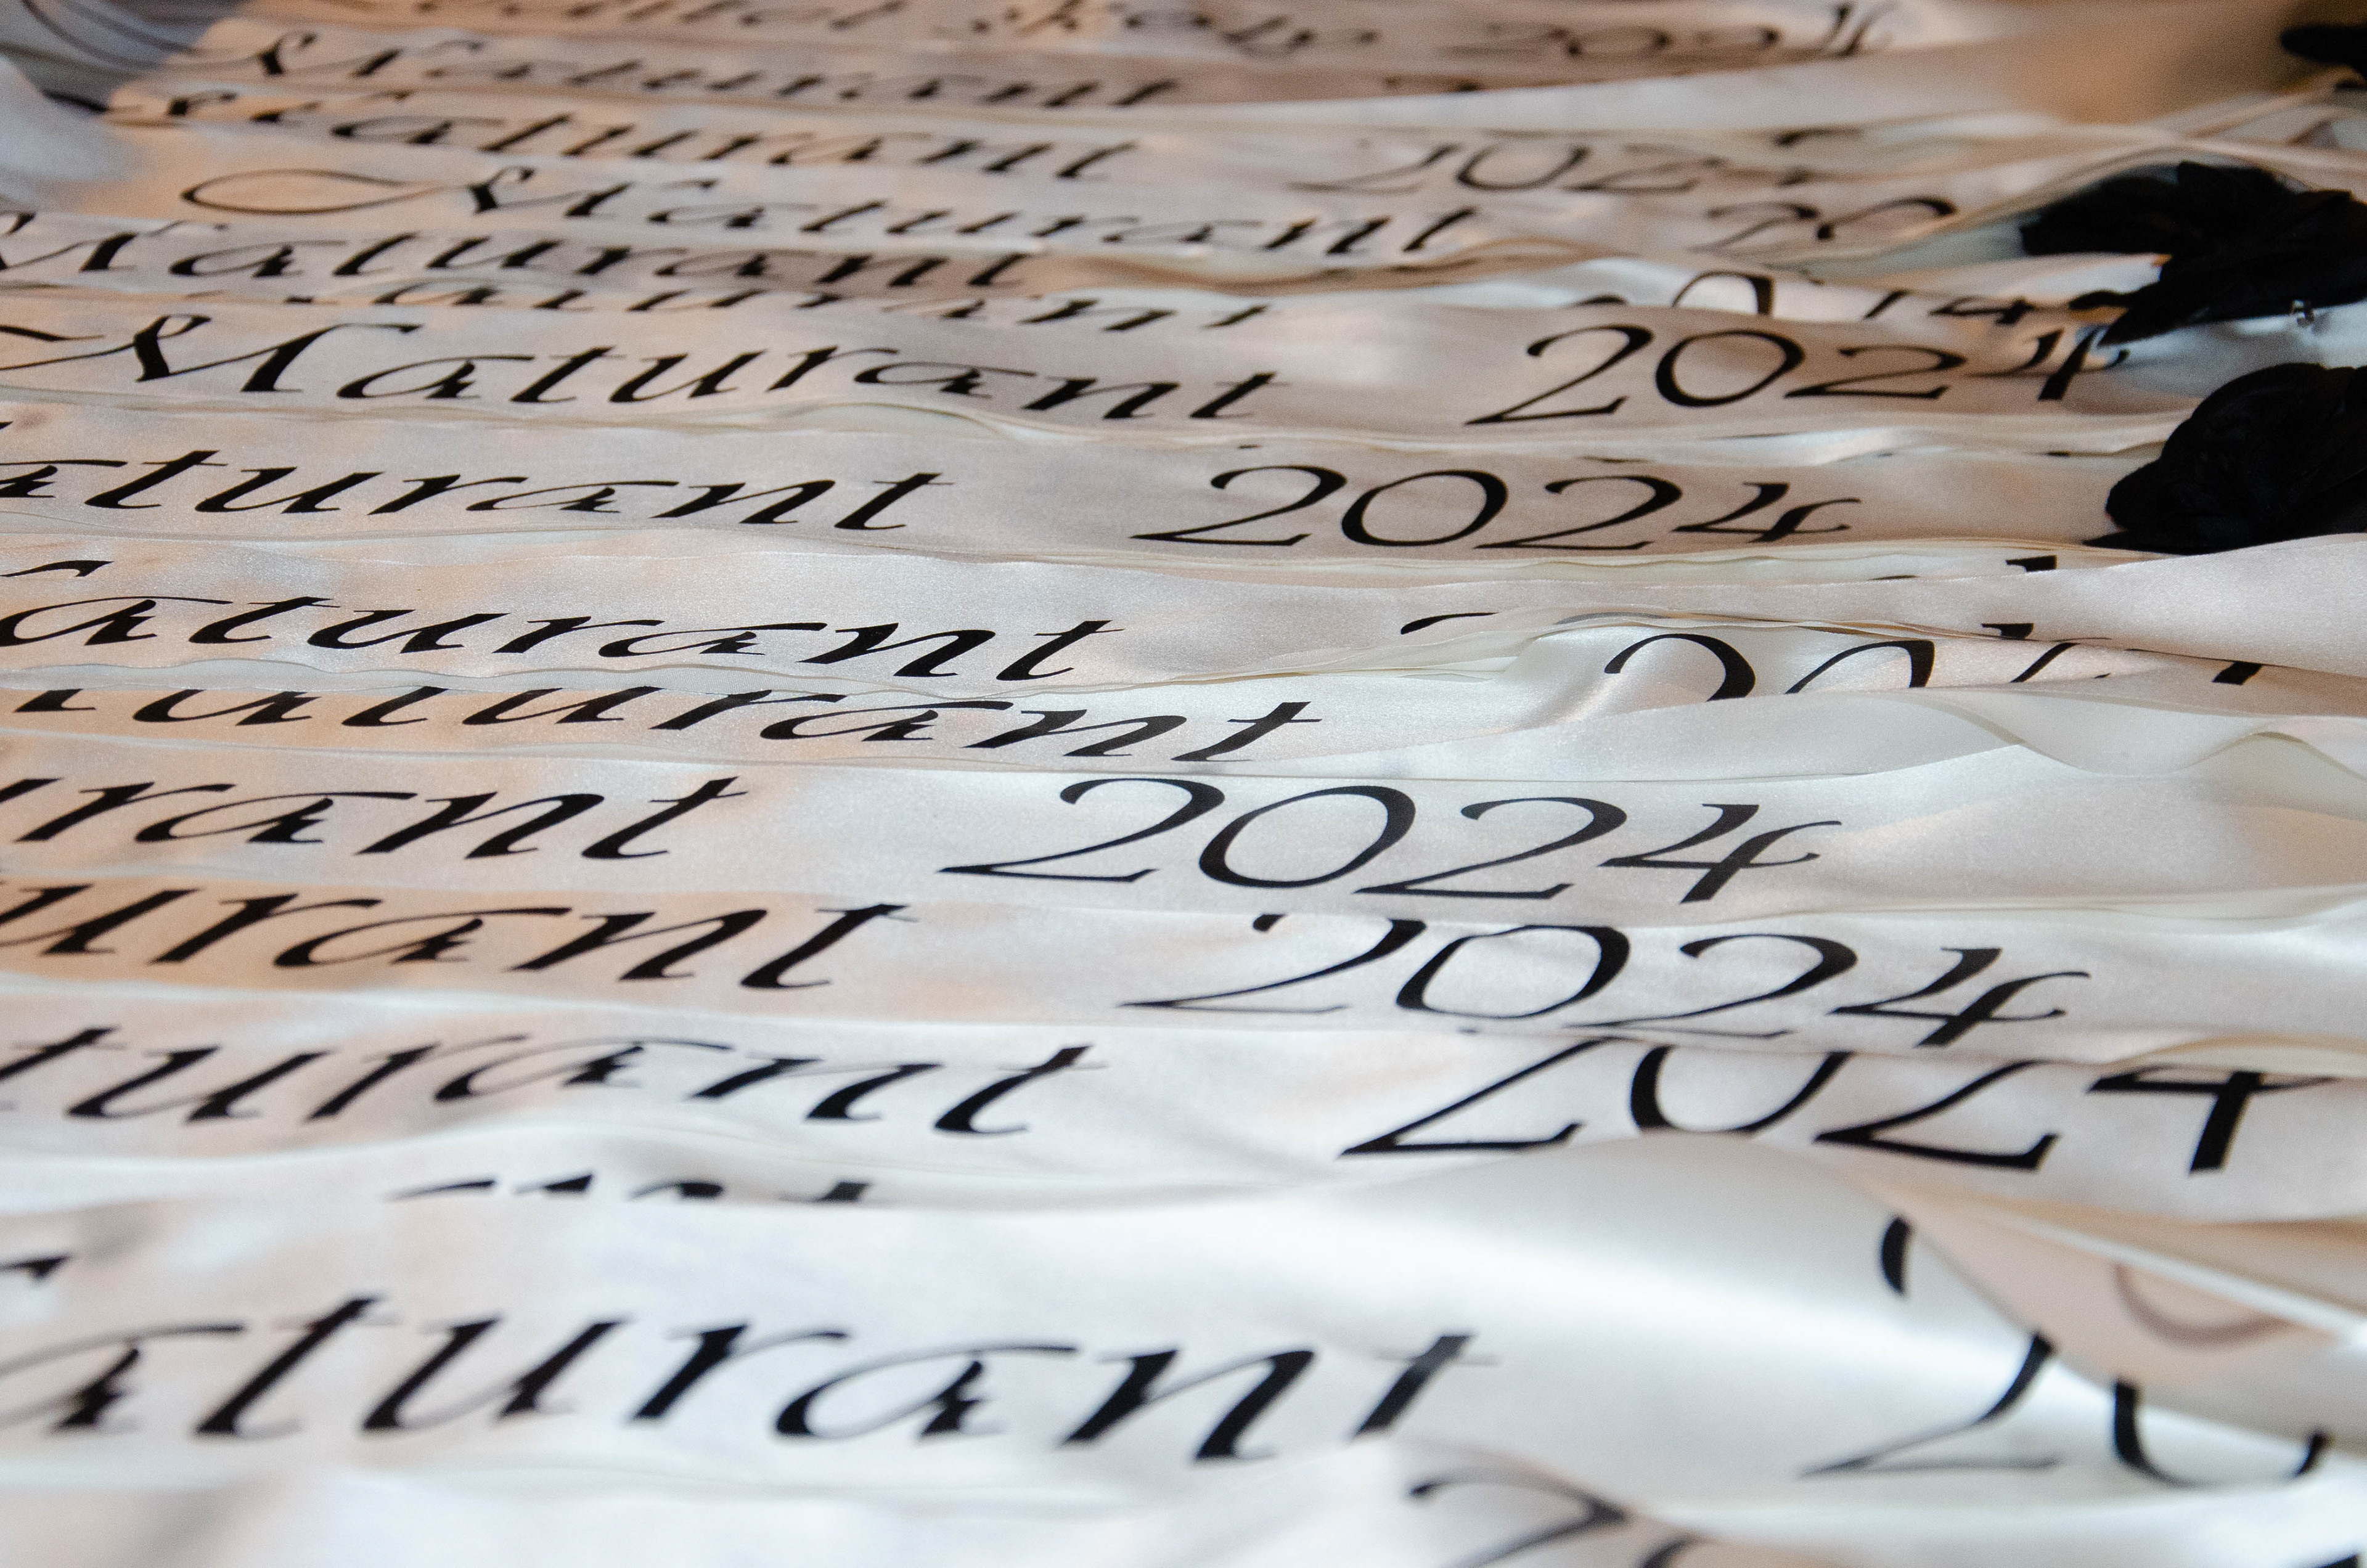 2024
Maturant
Maturant 202
Maturant 20
Maturant
Maturant 2024
aturant 2024
aturant
turant
rant 2024
urant 2024
turant 2024
aturant